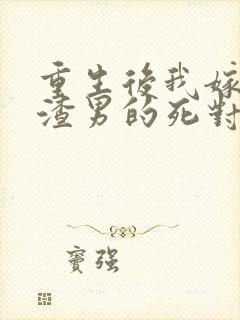 重生後我嫁
渣男的死對
竇強